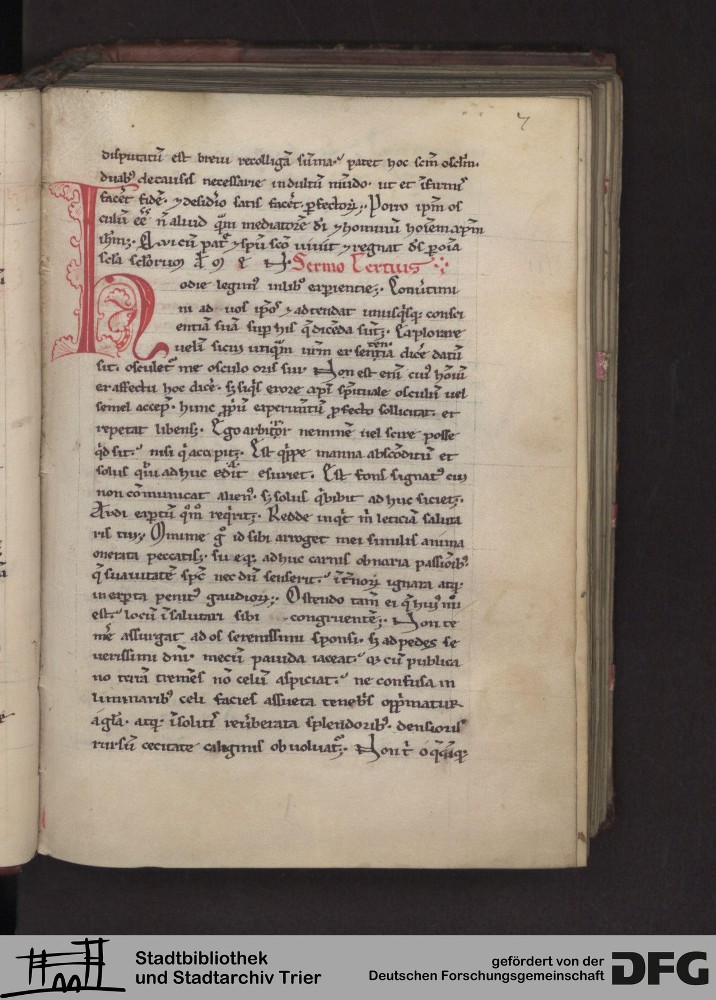 7
disputatū est breui recolligā sūma. patet hoc scm̄ osclm̄.
duab᷒ de causis necessarie indultū mūdo. ut et īfirmis
facet fidē. ⁊ desiderio satis facet ꝑfectorum. Porro ipm̄ os
culū eē n̄ aliud quam mediatorē dī ⁊ hominū hoīem xpm̄
ihm̄. Qui cū patre ⁊ spū scō uiuit ⁊ regnat ds̄ ꝑ om̄ia
scla sclorum Sermo Tercius
Hodie legimus in libro experientie. Conuertimi
ni ad uos ip̄os ⁊ adtendat unusqͥsqꝫ consci
entiā suā super his q̄ dicēda sūt. Explorare
uelī sicui unquam urm̄ ex sententia dicere datū
sit. osculetur me osculo oris sui. Non est enī cuiꝰ hoīum
ex affectu hoc dicere. sꝫ siqͥs ex ore xp̄i spirituale osculū uel
semel accepit. hunc propriū experimētū profecto sollicitat. et
repetat libens. Ego arbitror neminē uel scire posse
qͥd sit. nisi qͥ accipit. Est qͥppe manna abscōditū et
solus qui adhuc edit esuriet. Est fons signatꝰ cui
non cōmunicat alienꝰ. sꝫ solus qͥ bibit adhuc siciet.
Audi expertū quomodo reqͥrit. Redde inqͥt m̄ leticiā saluta
ris tui. Minime gͦ id sibi arroget mei similis anima
onerata peccatis. sueqꝫ adhuc carnis obnoxia passionibꝰ
q̄ suauitatē spc̄ nec dū senserit. īternorum ignara atqꝫ
inexperta penitꝰ gaudiorum. Ostendo tam̄ ei qͥ huiꝰ modi
est. locū ī salutari sibi congruentē. Non te
mere assurgat ad os serenissimi sponsi. sꝫ ad pedes se
uerissimi dn̄i. mecū pauida iaceat. ⁊ cū publica
no terrā tremens nō celū aspiciat. ne confusa in
luminaribꝰ celi facies assueta tenebris opprimatur
a gl̄a. atqꝫ īsolitis reuerberata splendoribꝰ. densioris
rursū cecitate caliginis obuoluatur. Non tibi o q̄cūqꝫ
Stadtbibliothek
und Stadtarchiv Trier
gefördert von der
Deutschen Forschungsgemeinschaft
DFG